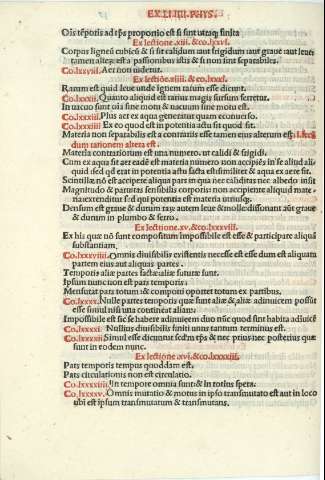 EX.LI.IIII.PHYS.
Ois tēporis ad tp̄s proportio est si sint utraq; finita
Ex lectione .xiii. & co.lxxvi.
Corpus ligneū cubicū & si sit calidum aut frigidum aut graue aut leue
tamen alteȝ est a passionibus istis & si non sint separabiles.
Co.lxxviii. Aer non uidetur.
Ex lectiōe.xiiii. & co.lxxxi.
Rarum est quid leue unde ignem rarum esse dicunt.
Co.lxxxii. Quanto aliquid est rarius magis sursum ferretur.
In uacuo sunt oīa sine motu & uacuum sine motu est.
Co.lxxxiii. Plus aer ex aqua generatur quam econuerso.
Co.lxxxiiii Ex eo quod est in potentia actu sit quod fit.
Materia non separabilis est a contrariis esse tamen eius alterum est.
dum rationem altera est.
Materia contrariorum est una numero. ut calidi & frigidi.
Cum ex aqua fit aer eadē est materia numero non accipiēs in se aliud aliquid
sed qd̄ erat in potentia actu facta est similiter & aqua ex aere fit.
Scintillae nō est accipere aliqua pars in qua nec caliditas nec albedo insit
Magnitudo & paruitas sensibilis corporis non accipiente aliquid materia
extenditur sed quia potentia est materia utriusq;.
Densum est graue & durum: rarū autem leue & molle: dissonant aūt graue
& durum in plumbo & ferro.
Ex lectione.xv. & co.lxxxviii.
Ex his quae nō sunt compositum impossibile est esse & participare aliquā
substantiam.
Co.lxxxviiii. Omnis diuisibilis existentis necesse est dum est aliquam
partem eius aut aliquas partes.
Temporis aliae partes factae aliae futurae sunt.
Ipsum nunc non est pars temporis.
Mensurat pars totum: & componi oportet totum ex partibus.
Co.lxxxx. Nullae partes temporis quae sunt aliae & aliae adinuicem possunt
esse simul nisi una contineat aliam.
Impossibile est sic se habere adinuicem duo nūc quod sint habita adiuicē
Co.lxxxxi. Nullius diuisibilis finiti unus tantum terminus est.
Co.lxxxxii Simul esse dicuntur secūm tp̄s & nec prius nec posterius quae
sunt in eodem nunc.
Ex lectione.xvi. & co.lxxxxiii.
Pars temporis tempus quoddam est.
Pars circulationis non est circulatio.
Co.lxxxxiiii In tempore omnia sunt: & in totius spera.
Co.lxxxxv. Omnis mutatio & motus in ipso transmutato est aut in loco
ubi est ipsum transmutatum & transmutans.